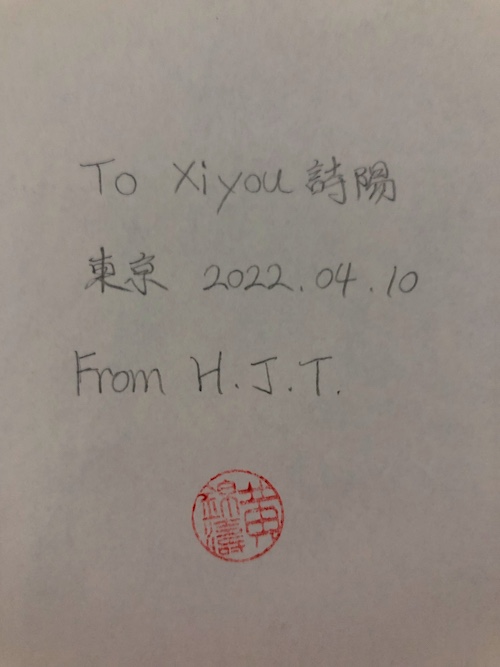 To Xiyou 詩陽
東京 2022.04.10
From H.J.T.
黄錦濤